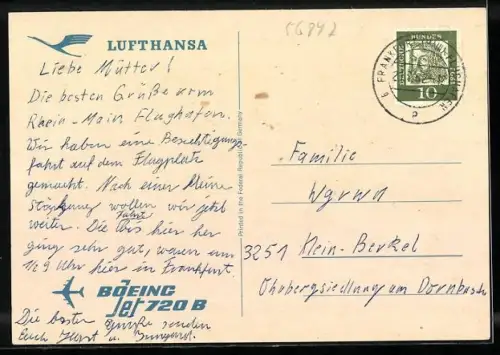 5684 2
LUFTHANSA
DEUTSCHE BUNDESPOST
10
FRANKFURT
P
Liebe Mutter!
Die besten Grüße vom
Rhein-Main Flughafen.
Wir haben eine Besichtigungs-
fahrt auf dem Flugplatz
gemacht. Nach einer kleine
wollen wir jetzt
weiter. Die Fahrt bis hier her
ging sehr gut, waren um
1/2 9 Uhr hier in Frankfurt.
BOEING
Jet 720 B
Die besten Grüße senden
Euch Horst u.
Printed in the Federal Republic of Germany
Familie
3251 Klein-Berkel
Ohrbergsiedlung am Dornbusch